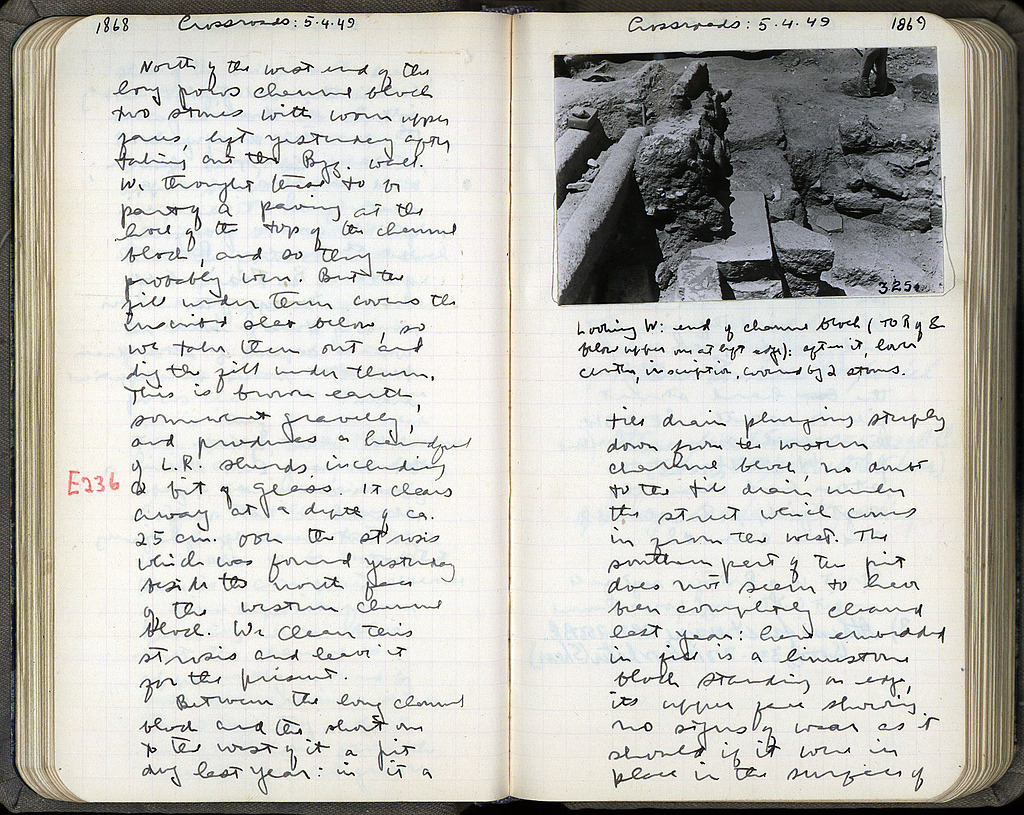 1868 Crossroads: 5.4.49
North of the west end of the
long poros channel block
two stones with worn upper
faces, left yesterday after
taking out the Byz. wall.
We thought these to be
part of a paving at the
level of the top of the channel
block, and so they
probably were. But the
fill under them covers the
inscribed slab below, so
we take them out and
dig the fill under them.
This is brown earth,
somewhat gravelly,
and produces a handful
of L.R. sherds including
E236 a bit of glass. It clears
away at a depth of ca.
25 cm. over the strosis
which was found yesterday
beside the north face
of the western channel
block. We clean this
strosis and leave it
for the present.
Between the long channel
block and the short one
to the west of it a pit
dug last year: in it a
Crossroads: 5.4.49 1869
325
Looking W: end of channel block (to R of &
below upper one at left edge): after it, lower
center, inscription, covered by 2 stones.
tile drain plunging steeply
down from the western
channel block, no doubt
to the tile drain under
the street which comes
in from the west. The
southern part of the pit
does not seem to have
been completely cleared
last year: here embedded
in fill is a limestone
block standing on edge,
its upper face showing
no signs of wear as it
should if it were in
place in the surface of